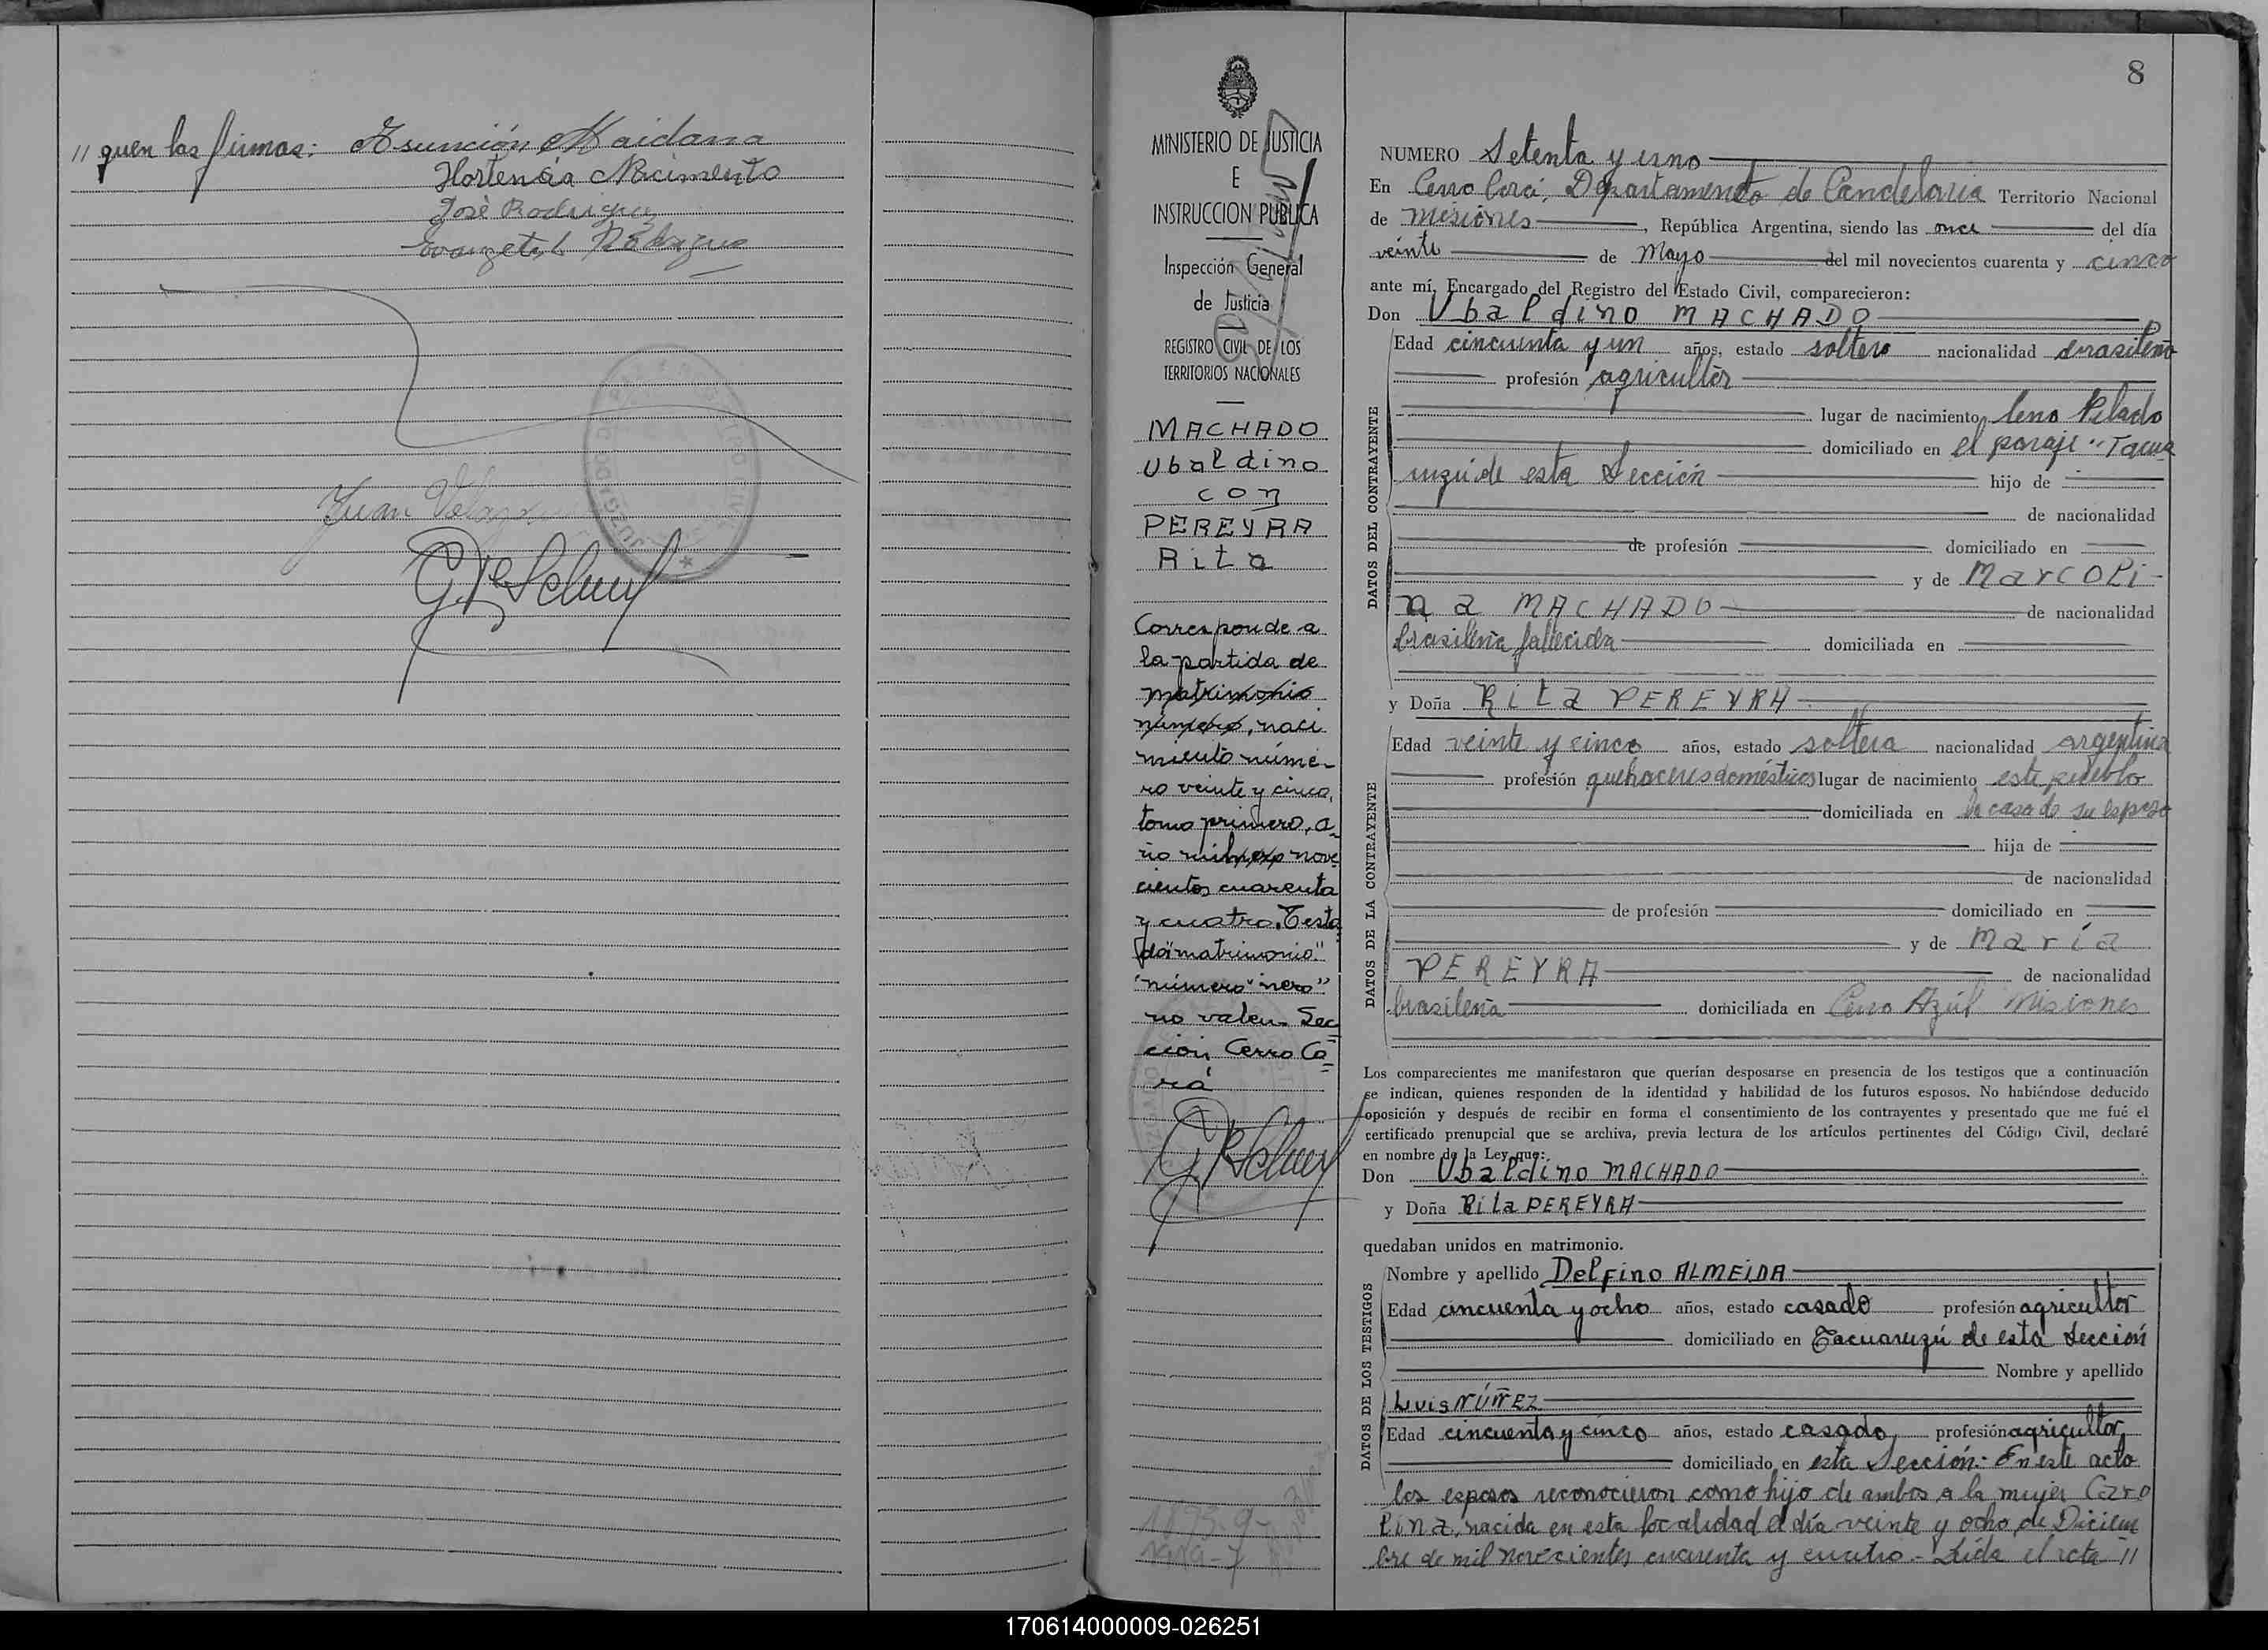 // quen las firmas: Asunción Maidana
Hortencia Nacimento
José Rodriguez
Juan
8
MINISTERIO DE JUSTICIA
E
INSTRUCCION PUBLICA
Inspección General
de Justicia
REGISTRO CIVIL DE LOS
TERRITORIOS NACIONALES
MACHADO
Ubaldino
con
PEREYRA
Rita
Corresponde a
la partida de
matrimonio
número, naci
miento núme-
ro veinte y cinco,
tomo primero, a-
ño mil nove
cientos cuarenta
y cuatro. Testa
do "matrimonio"
"número" "nero"
no valen. Sec
ción Cerro Co
rá
NUMERO Setenta y uno
En Cerro Corá, Departamento de Candelaria Territorio Nacional
de Misiones, República Argentina, siendo las once del día
veinte de Mayo del mil novecientos cuarenta y cinco
ante mí, Encargado del Registro del Estado Civil, comparecieron:
Don Ubaldino MACHADO
DATOS DEL CONTRAYENTE
Edad cincuenta y un años, estado soltero nacionalidad brasileño
profesión agricultor
lugar de nacimiento Cerro Pelado
domiciliado en el paraje "Tacua
ruzú de esta Sección hijo de
de nacionalidad
de profesión domiciliado en
y de Marcoli-
na MACHADO de nacionalidad
brasileña fallecida domiciliada en
y Doña Rita PEREYRA
DATOS DE LA CONTRAYENTE
Edad veinte y cinco años, estado soltera nacionalidad argentina
profesión quehaceres domésticos lugar de nacimiento este pueblo
domiciliada en la casa de su esposo
hija de
de nacionalidad
de profesión domiciliado en
y de María
PEREYRA de nacionalidad
brasileña domiciliada en Cerro Azúl Misiones
Los comparecientes me manifestaron que querían desposarse en presencia de los testigos que a continuación
se indican, quienes responden de la identidad y habilidad de los futuros esposos. No habiéndose deducido
oposición y después de recibir en forma el consentimiento de los contrayentes y presentado que me fué el
certificado prenupcial que se archiva, previa lectura de los artículos pertinentes del Código Civil, declaré
en nombre de la Ley que:
Don Ubaldino MACHADO
y Doña Rita PEREYRA
quedaban unidos en matrimonio.
DATOS DE LOS TESTIGOS
Nombre y apellido Delfino ALMEIDA
Edad cincuenta y ocho años, estado casado profesión agricultor
domiciliado en Tacuaruzú de esta Sección
Nombre y apellido
Luis NÚÑEZ
Edad cincuenta y cinco años, estado casado, profesión agricultor,
domiciliado en esta Sección.- En este acto
los esposos reconocieron como hijo de ambos a la mujer Caro
lina, nacida en esta localidad el día veinte y ocho de Diciem
bre de mil novecientos cuarenta y cuatro.- Leída el acta //
170614000009-026251